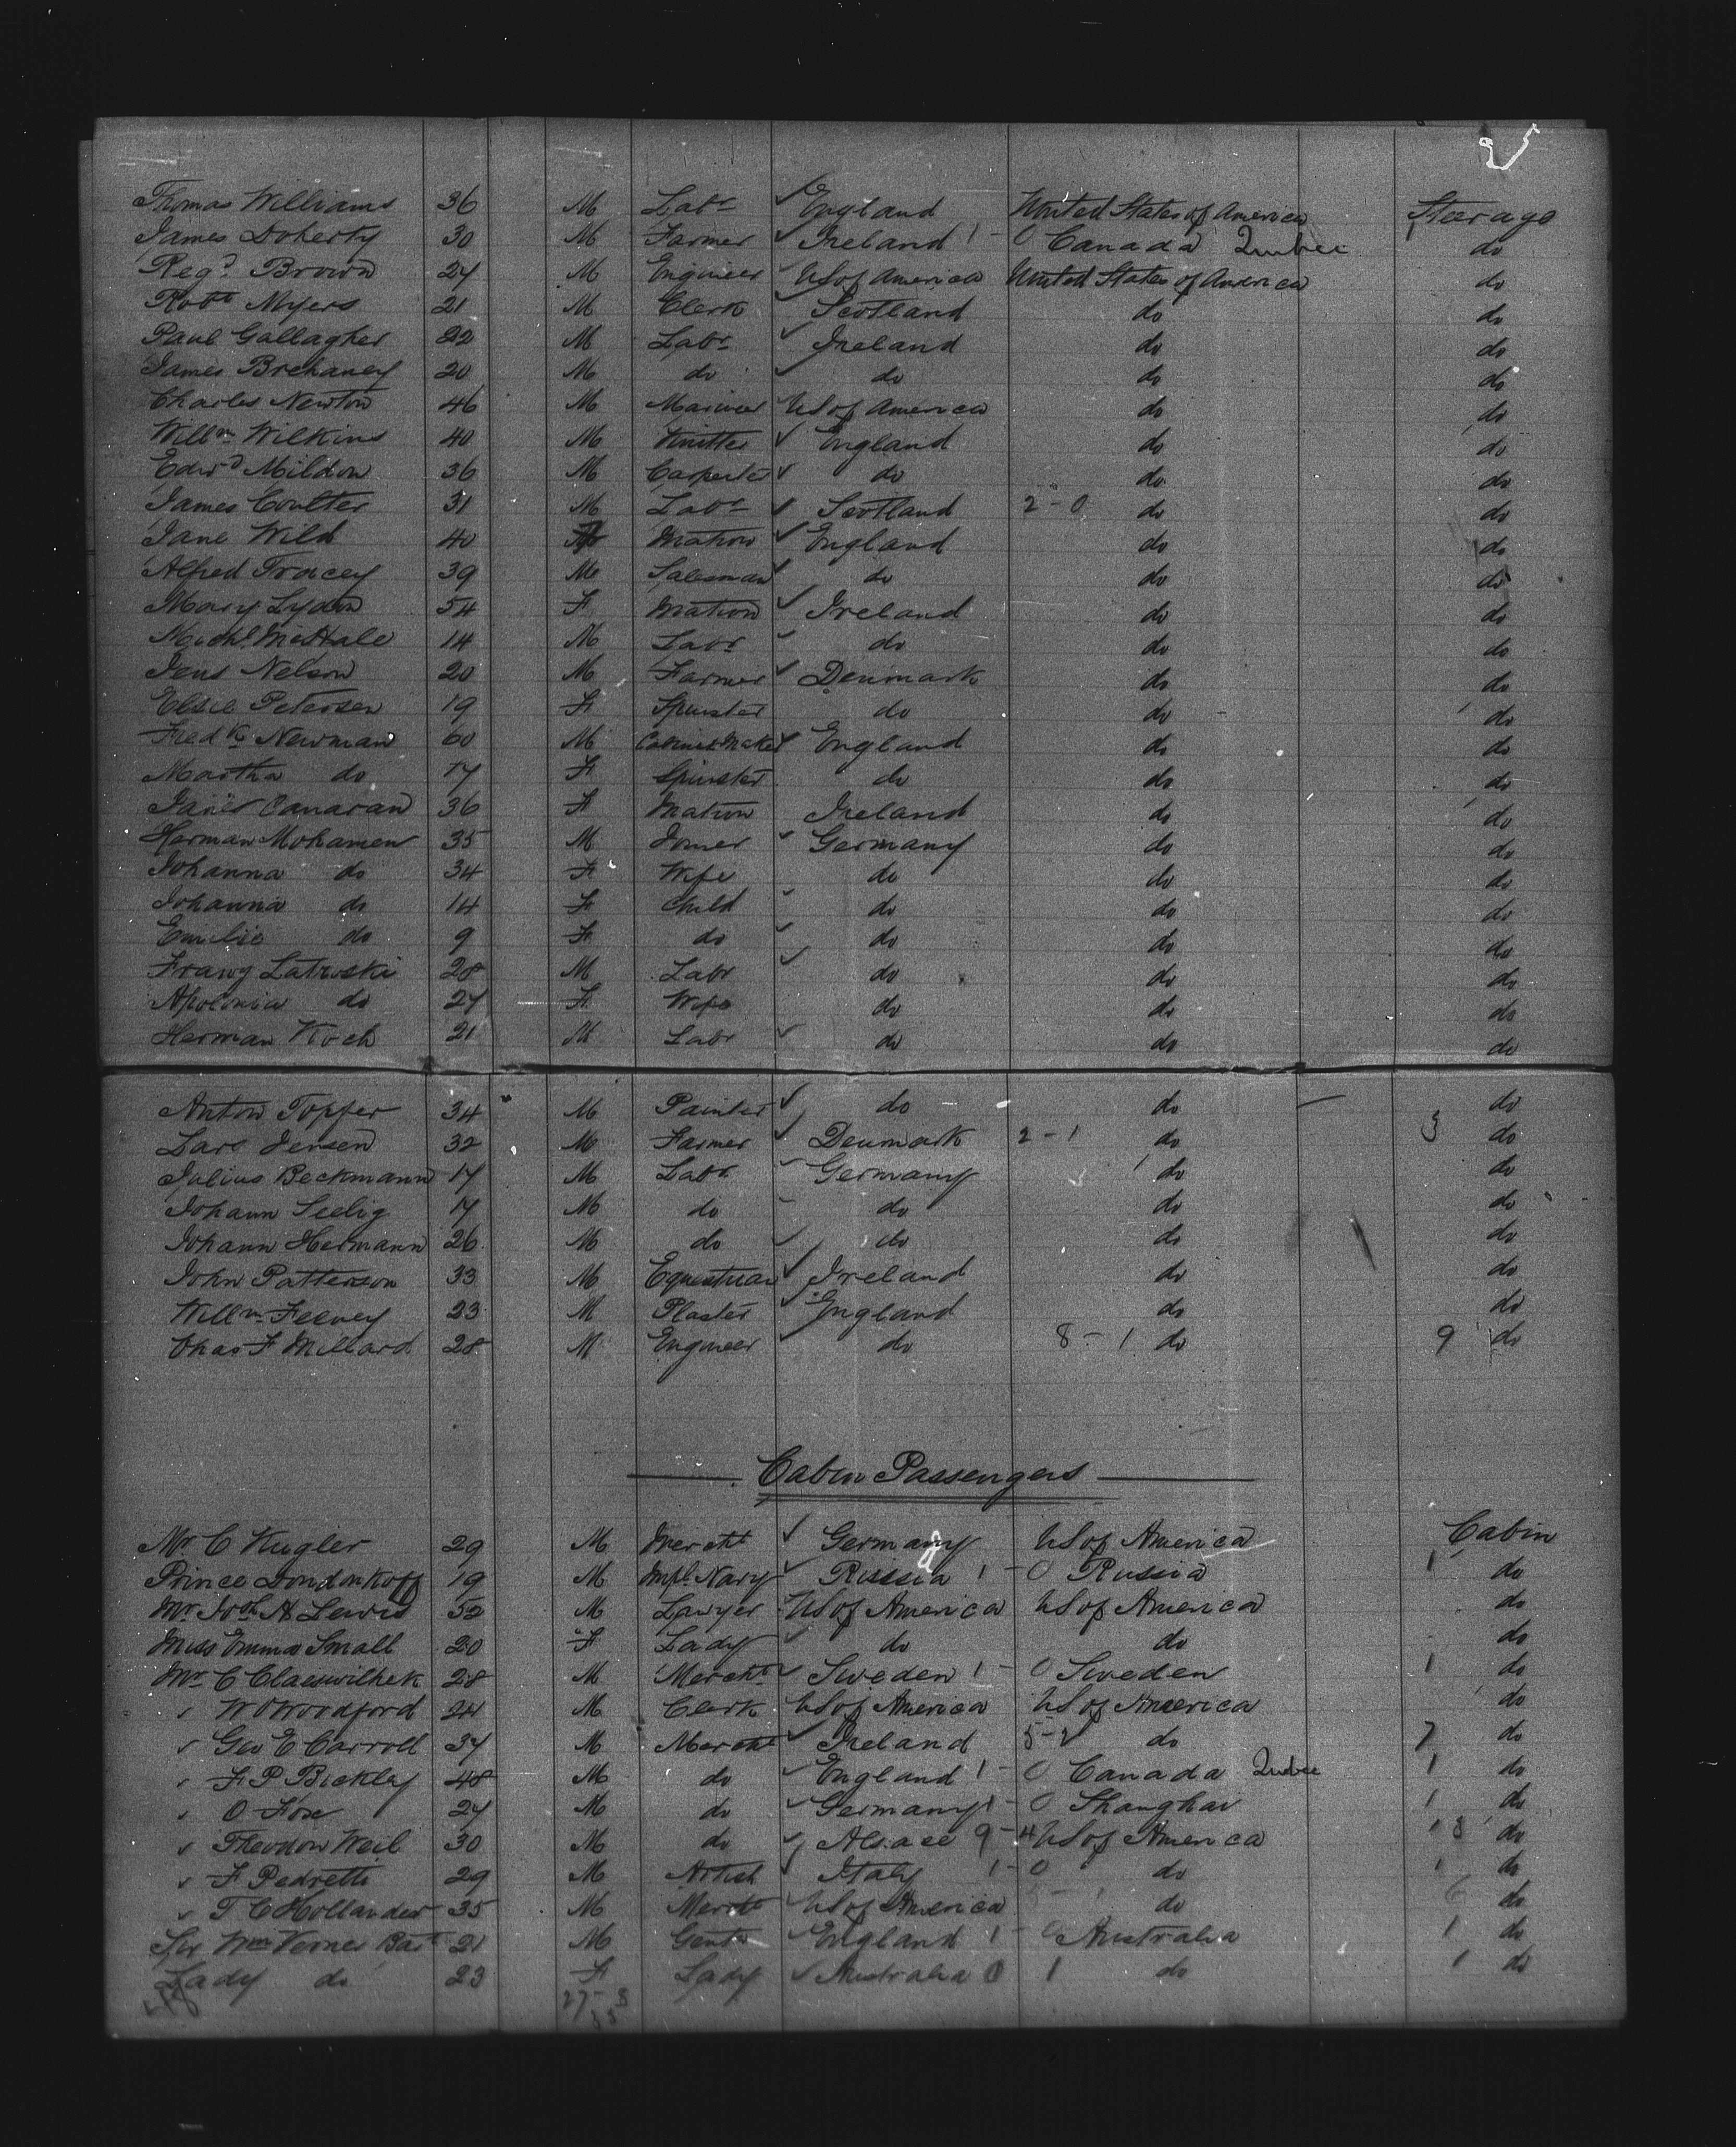 25
Thomas Williams 36 M Labr ✓ England United States of America Steerage
James Doherty 30 M Farmer ✓ Ireland 1 - 0 Canada Quebec do
Regd Brown 24 M Engineer US of America United States of America do
Robt Myers 21 M Clerk ✓ Scotland do do
Paul Gallagher 22 M Labr ✓ Ireland do do
James Brehaney 20 M do ✓ do do do
Charles Newton 46 M Mariner US of America do do
Willm Wilkins 40 M Knitter ✓ England do do
Edwd Mildon 36 M Carpenter ✓ do do do
James Coulter 31 M Labr ✓ Scotland 2 - 0 do do
Jane Wild 40 Matron ✓ England do do
Alfred Tracey 39 M Salesman ✓ do do do
Mary Lydon 54 F Matron ✓ Ireland do do
Michl McHale 14 M Labr ✓ do do do
Jens Nelson 20 M Farmer ✓ Denmark do do
Elsie Petersen 19 F Spinster do do do
Fredk Newman 60 M Cabinet Maker ✓ England do do
Martha do 17 F Spinster do do do
Canavan 36 F Matron Ireland do do
Herman Mohamen 35 M Joiner ✓ Germany do do
Johanna do 34 F Wife do do do
Johanna do 14 F Child ✓ do do do
Emilie do 9 F do ✓ do do do
Franz Latwoski 28 M Labr ✓ do do do
Apolonia do 27 F Wife do do do
Herman Koch 21 M Labr ✓ do do do
Anton Topfer 34 M Painter ✓ do do do
Lars Jensen 32 M Farmer ✓ Denmark 2 - 1 do 3 do
Julius Beckmann 17 M Labr ✓ Germany do do
Johann Seelig 17 M do do do do
Johann Hermann 26 M do ✓ do do do
John Patterson 33 M Equestrian ✓ Ireland do do
Willm Feeney 23 M Plaster ✓ England do do
Chas F Millard 28 M Engineer ✓ do 8 - 1 do 9 do
Cabin Passengers
Mr C Kugler 29 M Mercht ✓ Germany US of America Cabin
Prince Dondonkoff 19 M Impl. Navy ✓ Russia 1 - 0 Russia 1 do
Mr Jos H Lewis 52 M Lawyer US of America US of America do
Miss Emma Small 20 F Lady ✓ do do do
Mr C Claeswilhek 28 M Mercht ✓ Sweden 1 - 0 Sweden 1 do
" W O Woodford 24 M Clerk US of America US of America do
" Geo E Carroll 37 M Mercht ✓ Ireland 5 - 2 do 7 do
" F P Bickley 48 M do ✓ England 1 - 0 Canada Quebec 1 do
" O Fox 24 M do ✓ Germany 1 - 0 Shanghai 1 do
" Theodow Weil 30 M do ✓ Alsace 9 - 4 US of America 13 do
" F Pedretti 29 M Artist ✓ Italy 1 - 0 do 1 do
" T C Hollander 35 M Mercht ✓ US of America do 6 do
Sir Wm Verner Bart 21 M Gentn ✓ England 1 - 0 Australia 1 do
Lady do 23 F Lady ✓ Australia 0 1 do 1 do
27 - 8